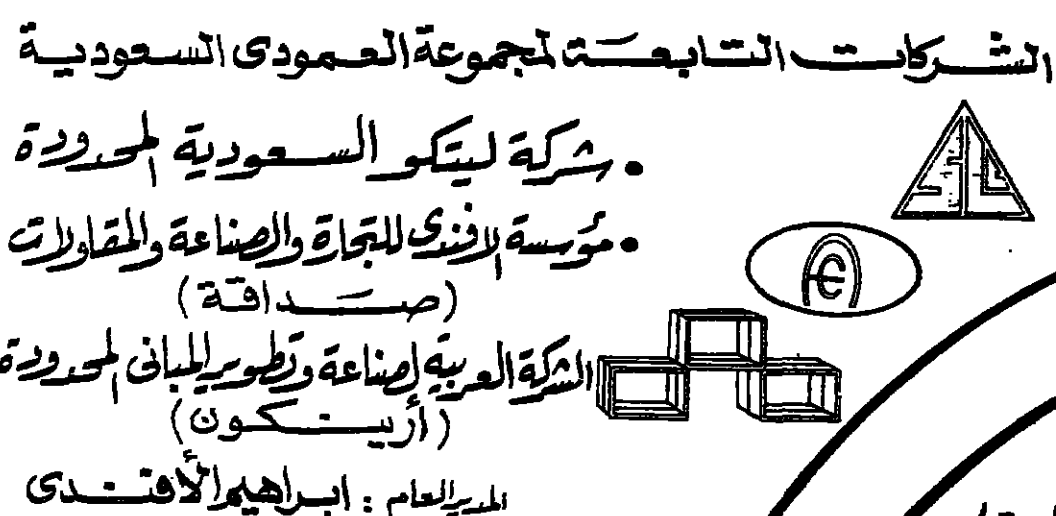 الشركات التابعة لمجموعة العمودى السعودية
• شركة ليتكو السعودية المحدودة
• مؤسسة الافندى للتجارة والصناعة والمقاولات
(صداقة)
الشركة العربية لصناعة وتطوير المبانى المحدودة
(أربيتكون)
المدير العام : ابراهيم الأفندى